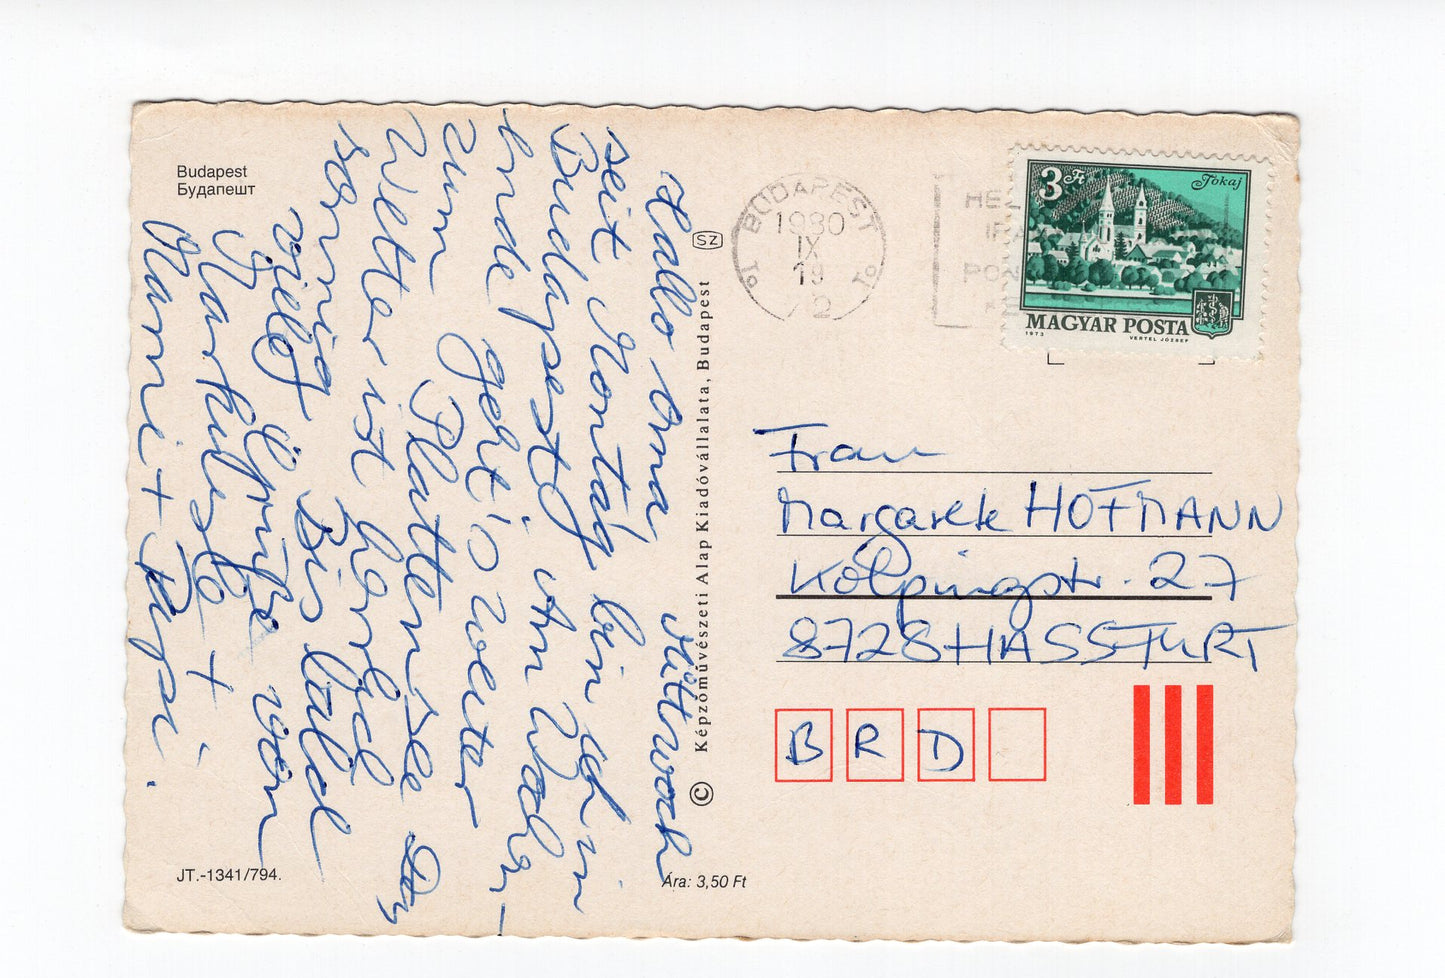 Budapest
Будапешт
Mittwoch
Hallo Oma,
seit Montag bin ich in
Budapest. Am Wochen-
ende geht's weiter
zum Plattensee. Das
Wetter ist herbstl.
sonnig. Bis bald
viele Grüße von
Markus +
Mami + Papi.
JT.-1341/794.
SZ
© Képzőművészeti Alap Kiadóvállalata, Budapest
Ára: 3,50 Ft
BUDAPEST
1980
IX
19
12
3 Ft
Tokaj
MAGYAR POSTA
1973
VERTEL JÓZSEF
Frau
Margarete HOFMANN
Kolpingstr. 27
8728 HASSFURT
B R D